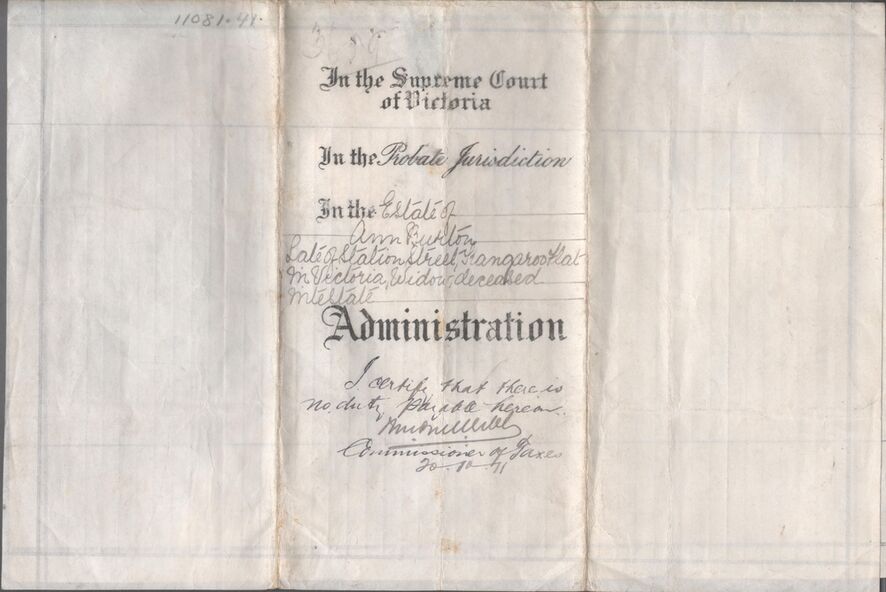 11081.41.
In the Supreme Court
of Victoria
In the Probate Jurisdiction
In the Estate of
Ann Burton
Late of Station Street, Kangaroo Flat
in Victoria, Widow, deceased
intestate
Administration
I certify that there is
no duty payable hereon.
Commissioner of Taxes